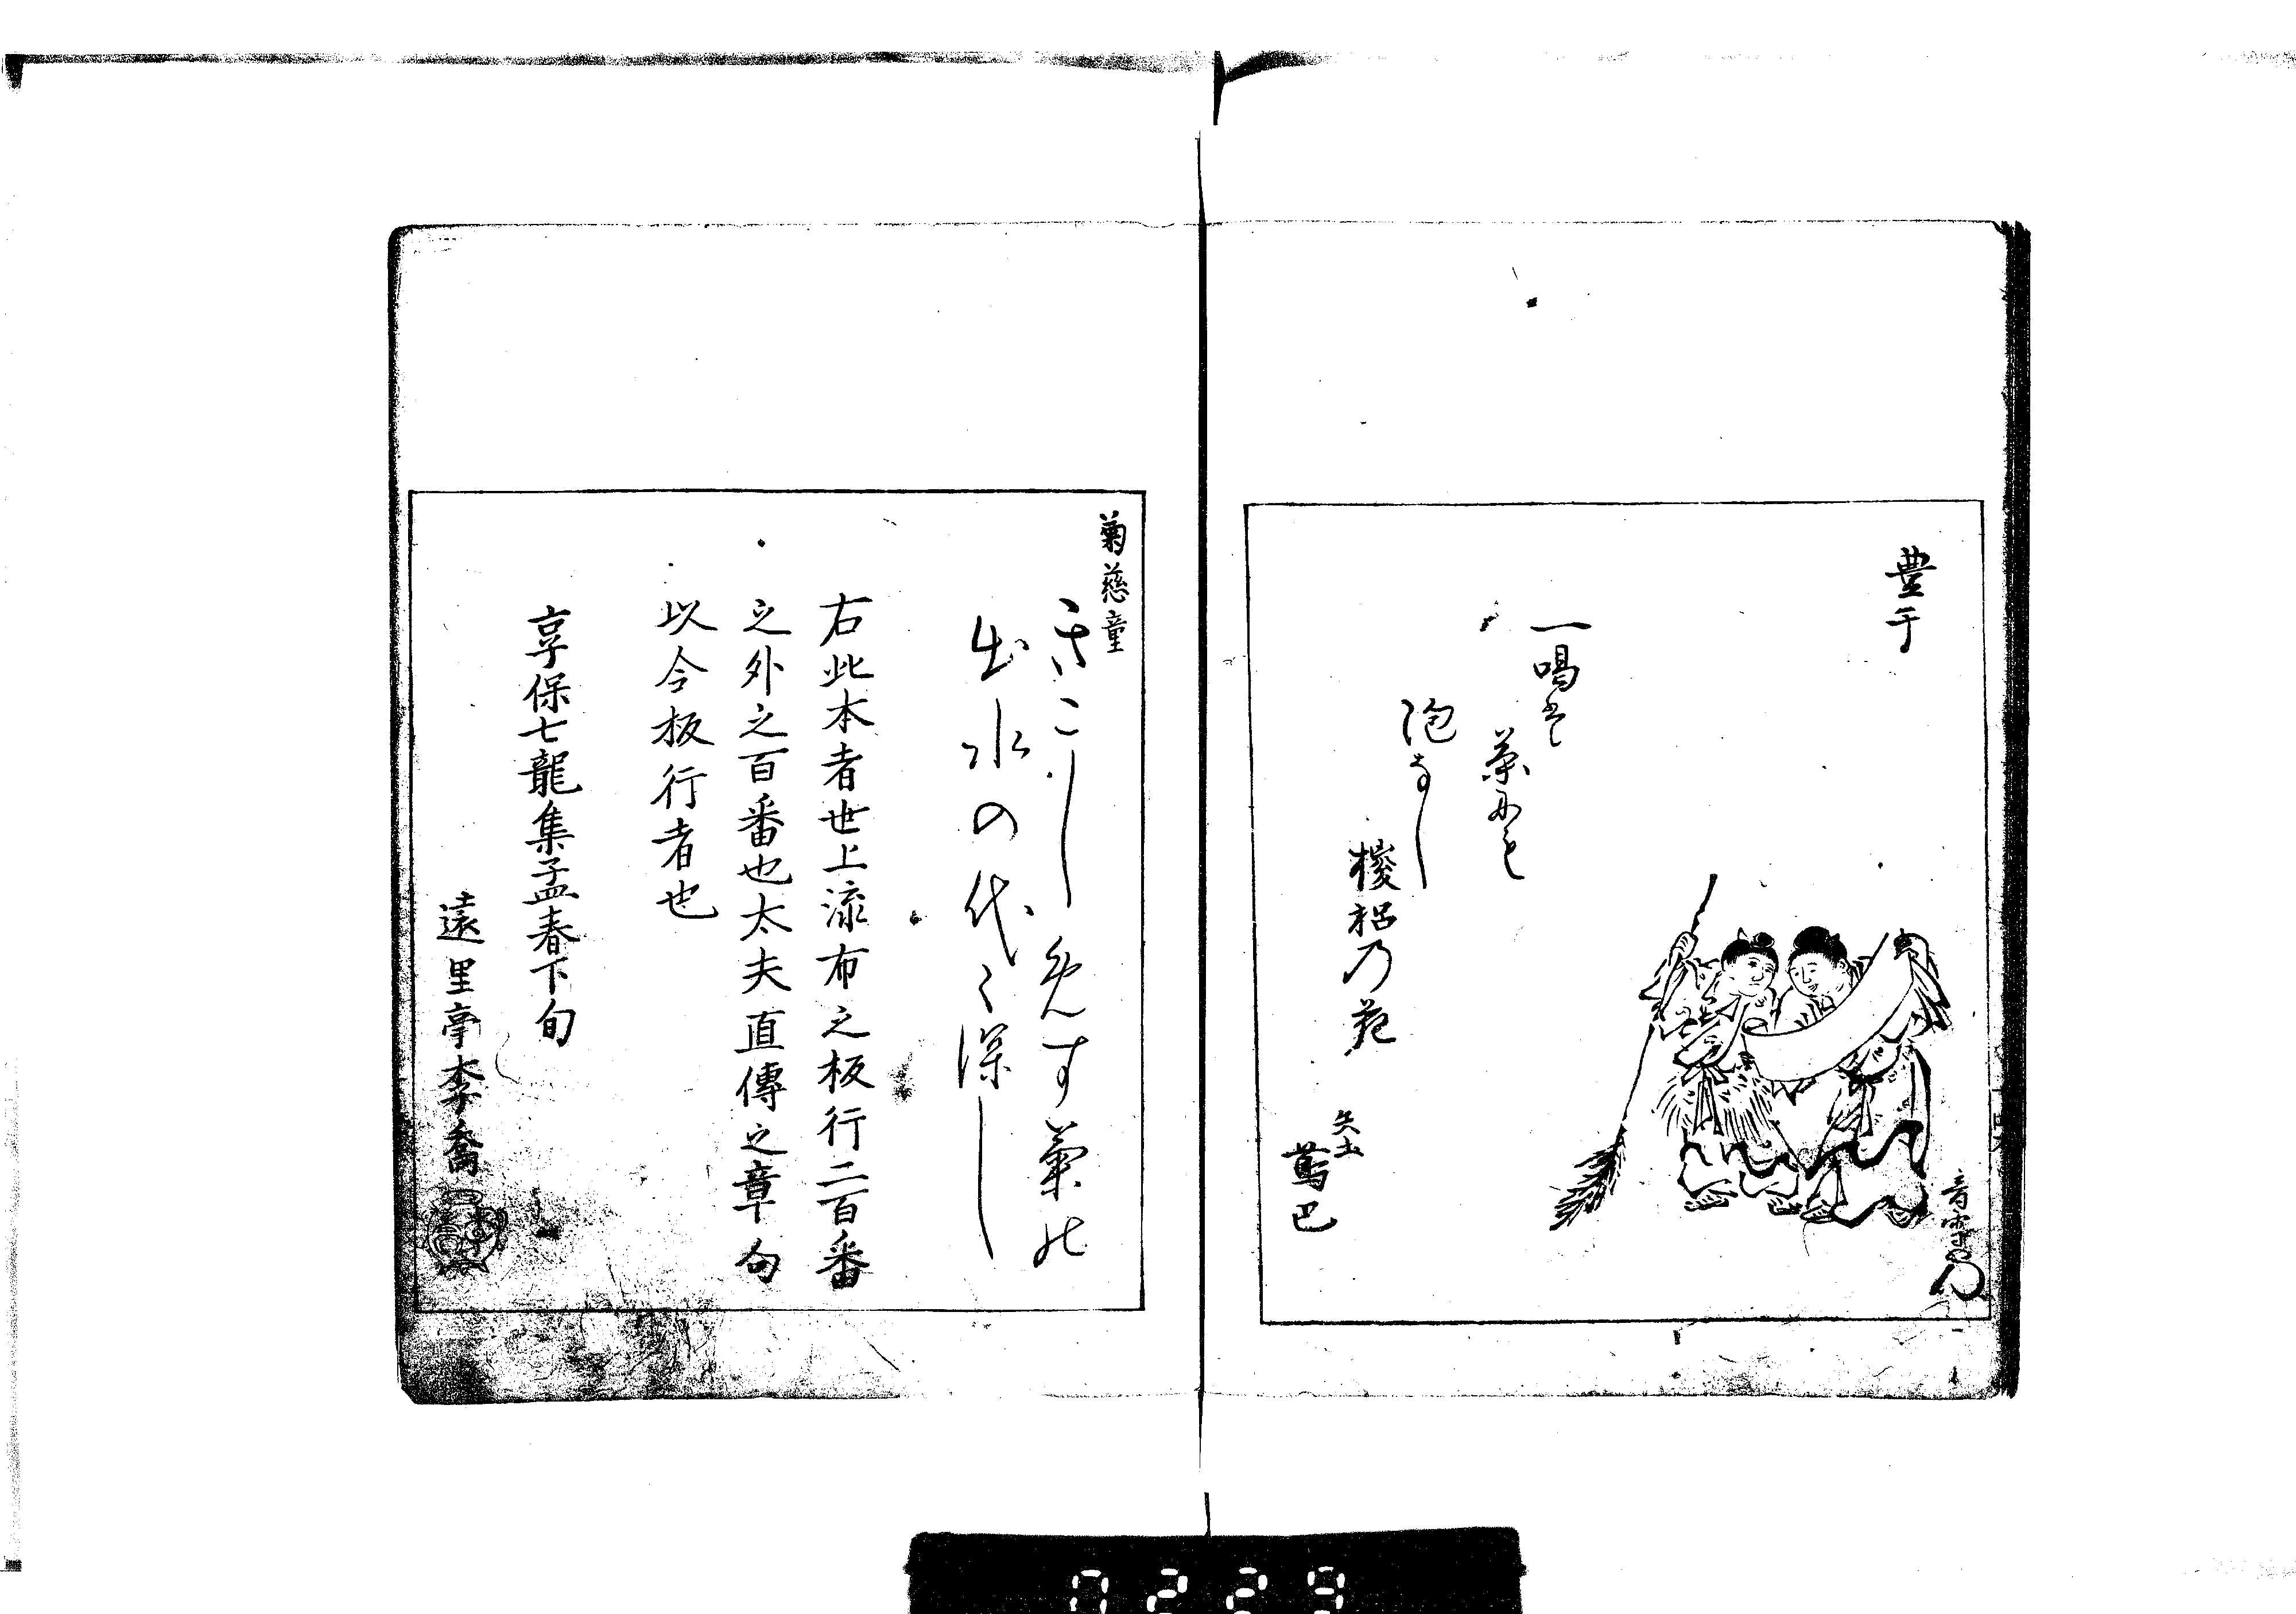 豊干
一喝に
茶にも
泡なし
椶梠乃花
矢土
蔦巴
菊慈童
きこしめす菊の
出水の代々深し
右此本者世上流布之板行二百番
之外之百番也太夫直傳之章句
以今板行者也
享保七龍集孟春下旬
遠里亭李喬
0229